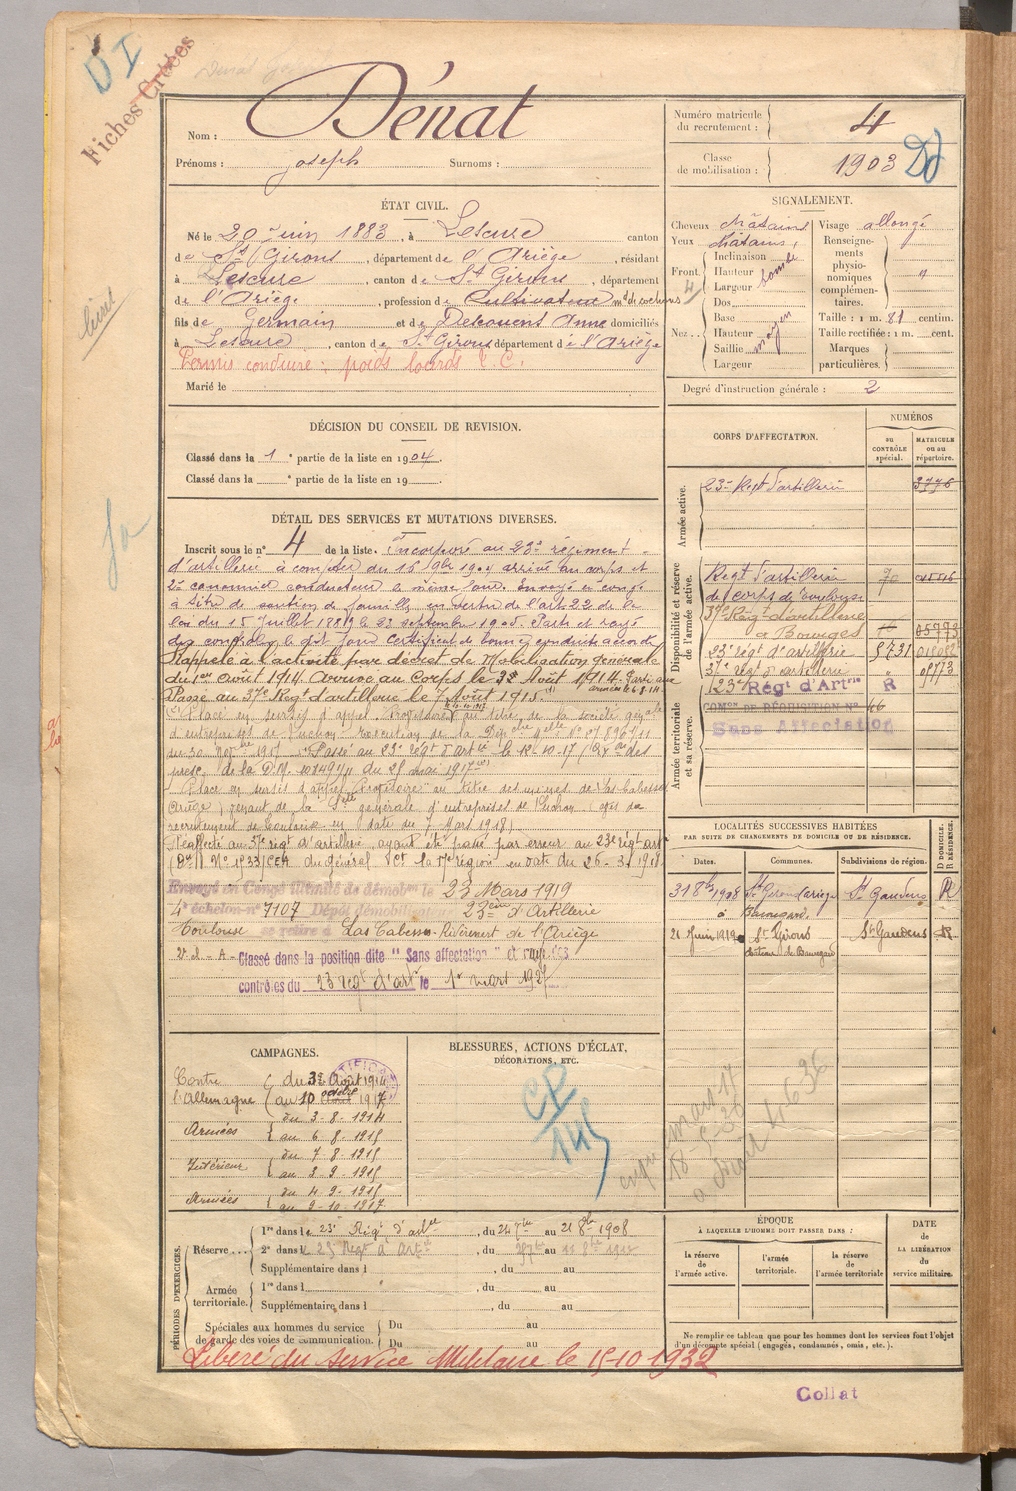 D I
Fiches Créées
Dénat
Nom :
Prénoms : Joseph Surnoms :
Numéro matricule du recrutement : 4
Classe de mobilisation : 1903
ÉTAT CIVIL.
Né le 20 Juin 1883, à Lescure canton
de St Girons, département de l'Ariège, résidant
à Lescure, canton de St Girons, département
de l'Ariège, profession de Cultivateur md de cochons
fils de Germain et de Descouens Anne domiciliés
à Lescure, canton de St Girons département de l'Ariège
Permis conduire : poids lourds T.C.
Marié le
SIGNALEMENT.
Cheveux châtains Visage allongé
Yeux châtains,
Front. Inclinaison
Hauteur
Largeur bombé
Nez... Dos
Base
Hauteur moyen
Saillie
Largeur
Renseignements physionomiques complémentaires. "
Taille : 1 m. 81 centim.
Taille rectifiée : 1 m. cent.
Marques particulières.
Degré d'instruction générale : 2
DÉCISION DU CONSEIL DE REVISION.
Classé dans la 1e partie de la liste en 1904.
Classé dans la e partie de la liste en 19
CORPS D'AFFECTATION.
NUMÉROS
au CONTRÔLE spécial.
MATRICULE ou au répertoire.
Armée active.
23e Regt d'artillerie 3776
Disponibilité et réserve de l'armée active.
Regt d'artillerie 70
de corps de Toulouse
37e Régt d'artillerie
à Bourges 05773
23e régt d'artillerie 5731
37e régt d'artillerie
Armée territoriale et sa réserve.
23e Régt d'Artrie R
COMon DE RÉQUISITION No 46
Sans Affectation
DÉTAIL DES SERVICES ET MUTATIONS DIVERSES.
Inscrit sous le no 4 de la liste. Incorporé au 23e régiment
d'artillerie à compter du 16 9bre 1904 arrivé au corps et
2e canonnier conducteur le même jour. Envoyé en congé
à titre de soutien de famille en vertu de l'art 22 de la
loi du 15 Juillet 1889 le 23 septembre 1905. Parti et rayé
des contrôles le dit jour Certificat de bonne conduite accordé
Rappelé à l'activité par décret de Mobilisation générale
du 1er août 1914. Arrivé au Corps le 3 Août 1914. Parti aux
armées le 6.8.14
Passé au 37e Regt d'artillerie le 7 Août 1915.
Placé en sursis d'appel au titre de la société générale
d'entreprises
Passé au 23e régt d'artie le 12-10-17
de la D.M. du 25 mai 1917
Placé en sursis d'appel au titre des mines de Las Cabesses
Ariège, gérant de la Sté générale d'entreprises de
recrutement de Toulouse en date du 7 Mars 1918)
Réaffecté au 37e régt d'artillerie, ayant été passé par erreur au 23e régt art
du général Ct la 17e région en date du 26-3-1918
Envoyé en Congé illimité de démobon le 23 Mars 1919
4e échelon-no 7107 Dépôt démobilisateur 23ème d'Artillerie
Toulouse se retire à Las Cabesses-Rivèrenert de l'Ariège
Classé dans la position dite " Sans affectation " et rayé des
contrôles du 23 régt d'art le 1er mars 1927
LOCALITÉS SUCCESSIVES HABITÉES
PAR SUITE DE CHANGEMENTS DE DOMICILE OU DE RÉSIDENCE.
Dates. Communes. Subdivisions de région. D DOMICILE. R RÉSIDENCE.
31 8bre 1908 St Girons Ariège St Gaudens R
à Beauregard.
21 Juin 1919 St Girons St Gaudens R
château de Beauregard
CAMPAGNES.
Contre l'Allemagne { du 3 Août 1914
au 10 octobre 1917
Armées { du 3-8-1914
au 6-8-1915
Intérieur { du 7-8-1915
au 3-9-1915
Armées { du 4-9-1915
au 9-10-1917
BLESSURES, ACTIONS D'ÉCLAT,
DÉCORATIONS, ETC.
CP
145
PÉRIODES D'EXERCICES.
Réserve... 1re dans le 23e Régt d'artie, du 24 7bre au 21 8bre 1908
2e dans le 23 Régt d'artie, du au
Supplémentaire dans l , du au
Armée territoriale. 1re dans l , du au
Supplémentaire, dans l , du au
Spéciales aux hommes du service de garde des voies de communication. Du au
Du au
ÉPOQUE
À LAQUELLE L'HOMME DOIT PASSER DANS :
la réserve de l'armée active. l'armée territoriale. la réserve de l'armée territoriale
DATE DE LA LIBÉRATION du service militaire.
Ne remplir ce tableau que pour les hommes dont les services font l'objet
d'un décompte spécial (engagés, condamnés, omis, etc.).
Libéré du service Militaire le 15-10-1932
Collat